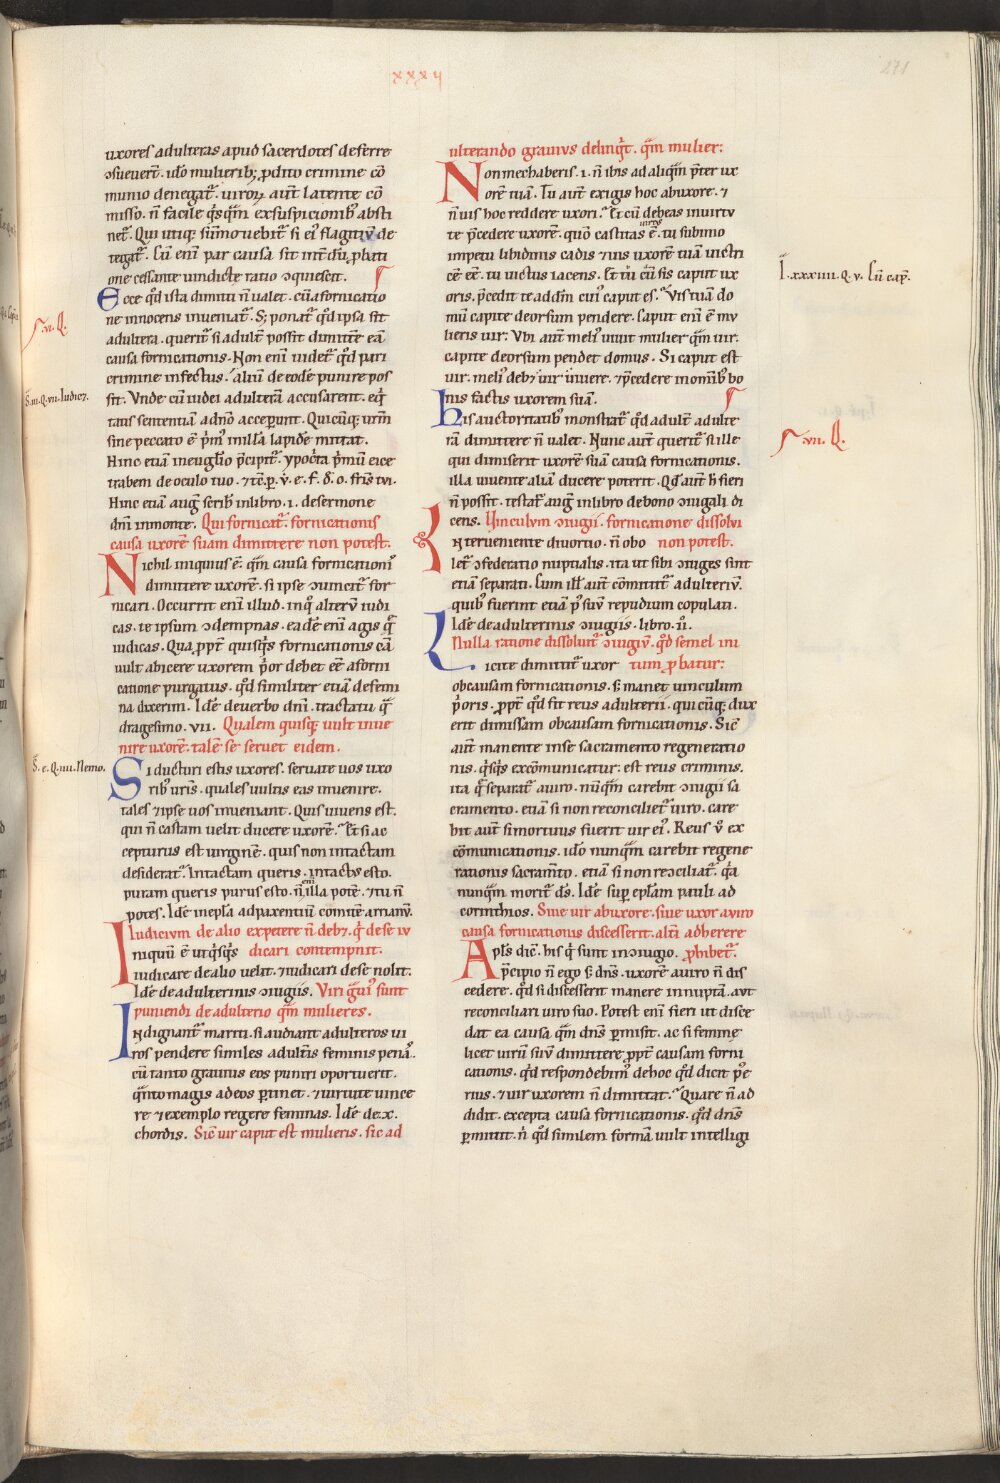 xxxii
271
uxores adulteras apud sacerdotes deferre
ↄsueuerᷣt. iđo mulierib; ꝓdito crimine cō
munio denegatᷣ. uiroꝝ aūt latente cō
misso. n̄ facile qͥsqͣm exsuspicionibꝰ absti
netᷣ. Qui utiqꝫ sūmouebitᷣ si eiꝰ flagitiū de
tegatᷣ. Cū enī par causa sit int̄dū. ꝓbati
one cessante uindictę ratio ↄquiescit.
Ecce qđ ista dimitti n̄ ualet. cū a fornicatio
.vi. Q.
ne innocens inueniatᷣ. S; ponatᷣ qđ ipsa sit
adultera. queritᷣ si adulter possit dimittere eā
causa fornicationis. Non enī uidetᷣ qđ pari
crimine infectus. aliū de eodē punire pos
sit. Vnde cū iudei adulterā accusarent. eqͣ
S. iii. Q. vii. Iudicet.
tatis sententiā a dn̄o acceperunt. Quicūqꝫ urm̄
sine peccato ē pͥmꝰ in illā lapidē mittat.
Hinc etiā in euglio p̄cipitᷣ. ypocͥta pͥmū eice
trabem de oculo tuo. ⁊tc̄. p. v̇. e. f. d. o. frīs tui.
Hinc etiā augꝰ scribit in libro .i. de sermone
dn̄i in monte. Qui fornicatᷣ. fornicationis
causa uxorē suam dimittere non potest.
Nichil iniquius ē. qͣm causa fornicationiꝰ
dimittere uxorē. si ipse ↄuincitᷣ for
nicari. Occurrit enī illud. in qͦ alterū iudi
cas. te ipsum ↄdempnas. eadē enī agis qͣ
iudicas. Qua ꝓpt̄ quisqͥs fornicationis cā
uult abicere uxorem pͥor debet eē a forni
catione purgatus. qđ similiter etiā de femi
na dixerim. Idē de uerbo dn̄i. tractatu qͣ
dragesimo .vii. Qualem quisqꝫ uult inue
nire uxorē. talē se seruet eidem.
Si ducturi estis uxores. seruate uos uxo
S. e. Q. iiii. Nemo.
ribꝰ ur̄is. quales uultis eas inuenire.
tales ⁊ ipse uos inueniant. Quis iuuenis est.
qui n̄ castam uelit ducere uxorē. Et si ac
cepturus est uirginē. quis non intactam
desideratᷣ. Intactam queris. intactus esto.
puram queris purus esto. n̄ enī illa potē. ⁊ tu n̄
potes. Idē in ep̄la ad paxentiū comitē arrianū.
Iudicium de alio expetere n̄ debꝫ. qͥ de se iu
niquū ē ut qͥsqͥs dicari contempnit.
iudicare de alio uelit. ⁊ iudicari de se nolit.
Idē de adulterinis ↄiugiis. Viri gͣuiꝰ sunt
puniendi de adulterio qͣm mulieres.
Indignantᷣ mariti. si audiant adulteros ui
ros pendere similes adultis feminis penā.
cū tanto grauius eos puniri oportuerit.
qͣnto magis ad eos ꝑtinet. ⁊ uirtute uince
re ⁊ exemplo regere feminas. Idē de .x.
chordis. Sic̄ uir caput est mulieris. sic ad
ulterando grauius delinqͥt. qͣm mulier:
Non mechaberis. i. n̄ ibis ad aliqͣm p̄ter ux
orē tuā. Tu aūt exigis hoc ab uxore. ⁊
n̄ uis hoc reddere uxori. Et cū debeas in uirtu
te p̄cedere uxorē. quō castitas uirtus ē. tu sub uno
impetu libidinis cadis ⁊ uis uxorē tuā uictri
cē eē. tu uictus iaces. Et tu cū sis caput ux
I. xxxiiii. Q. v. Cū cap̄.
oris. p̄cedit te ad dm̄ cuiꝰ caput es. Vis tuā do
mū capite deorsum pendere. Caput enī ē mu
lieris uir. Vbi aūt meliꝰ uiuit mulier qͣm uir.
capite deorsum pendet domus. Si caput est
uir. meliꝰ debꝫ uir uiuere. ⁊ p̄cedere in omībꝰ bo
nis factis uxorem suā.
His auctoritatibꝰ monstratᷣ qđ adulter adulte
rā dimittere n̄ ualet. Nunc aūt queritᷣ si ille
.vii. Q.
qui dimiserit uxorē suā causa fornicationis.
illa uiuente aliā ducere poterit. Qđ aūt h̄ fieri
n̄ possit. testatᷣ augꝰ in libro de bono ↄiugali di
cens. Vinculum ↄiugii. fornicatione dissolui
Interueniente diuortio. n̄ abo non potest.
letᷣ ↄfederatio nuptialis. ita ut sibi ↄiuges sint
etiā separati. Cum illꝰ aūt cōmittitᷣ adulteriū.
quibꝰ fuerint etiā pꝰ suū repudium copulati.
Idē de adulterinis ↄiugiis. libro .ii.
Nulla ratione dissoluitᷣ ↄiugiū. qđ semel ini
Licite dimittitᷣ uxor tum ꝓbatur:
ob causam fornicationis. s; manet uinculum
pͥoris. ꝓpt̄ qđ fit reus adulterii. quicūqꝫ dux
erit dimissam ob causam fornicationis. Sic̄
aūt manente in se sacramento regeneratio
nis. qͥsqͥs excōmunicatur: est reus criminis.
ita qͣ separatᷣ a uiro. nūqͣm carebit ↄiugii sa
cramento. etiā si non reconcilietᷣ uiro. care
bit aūt si mortuus fuerit uir eiꝰ. Reus ũ ex
cōmunicationis. iđo nunqͣm carebit regene
rationis sacram̄to. etiā si non recↄciliatᷣ. qͥa
nunqͣm moritᷣ ds̄. Idē suꝑ ep̄lam pauli ad
corinthios. Siue uir ab uxore. siue uxor a uiro
causa fornicationis discesserit. alt̄i adherere
Apl̄s dic̄. his qͥ sunt in ↄiugio. ꝓhibetᷣ.
p̄cipio n̄ ego s; dn̄s. uxorē a uiro n̄ dis
cedere. qđ si discesserit manere innuptā. aut
reconciliari uiro suo. Potest enī fieri ut disce
dat ea causa qͣm dn̄s ꝑmisit. ac si feminę
licet uirū suū dimittere ꝓpt̄ causam forni
cationis. qđ respondebimꝰ de hoc qđ dicit pͦe
rius. ⁊ uir uxorem n̄ dimittat. Quare n̄ ad
didit. excepta causa fornicationis. qđ dn̄s
ꝑmittit. nͥ qđ similem formā uult intelligi